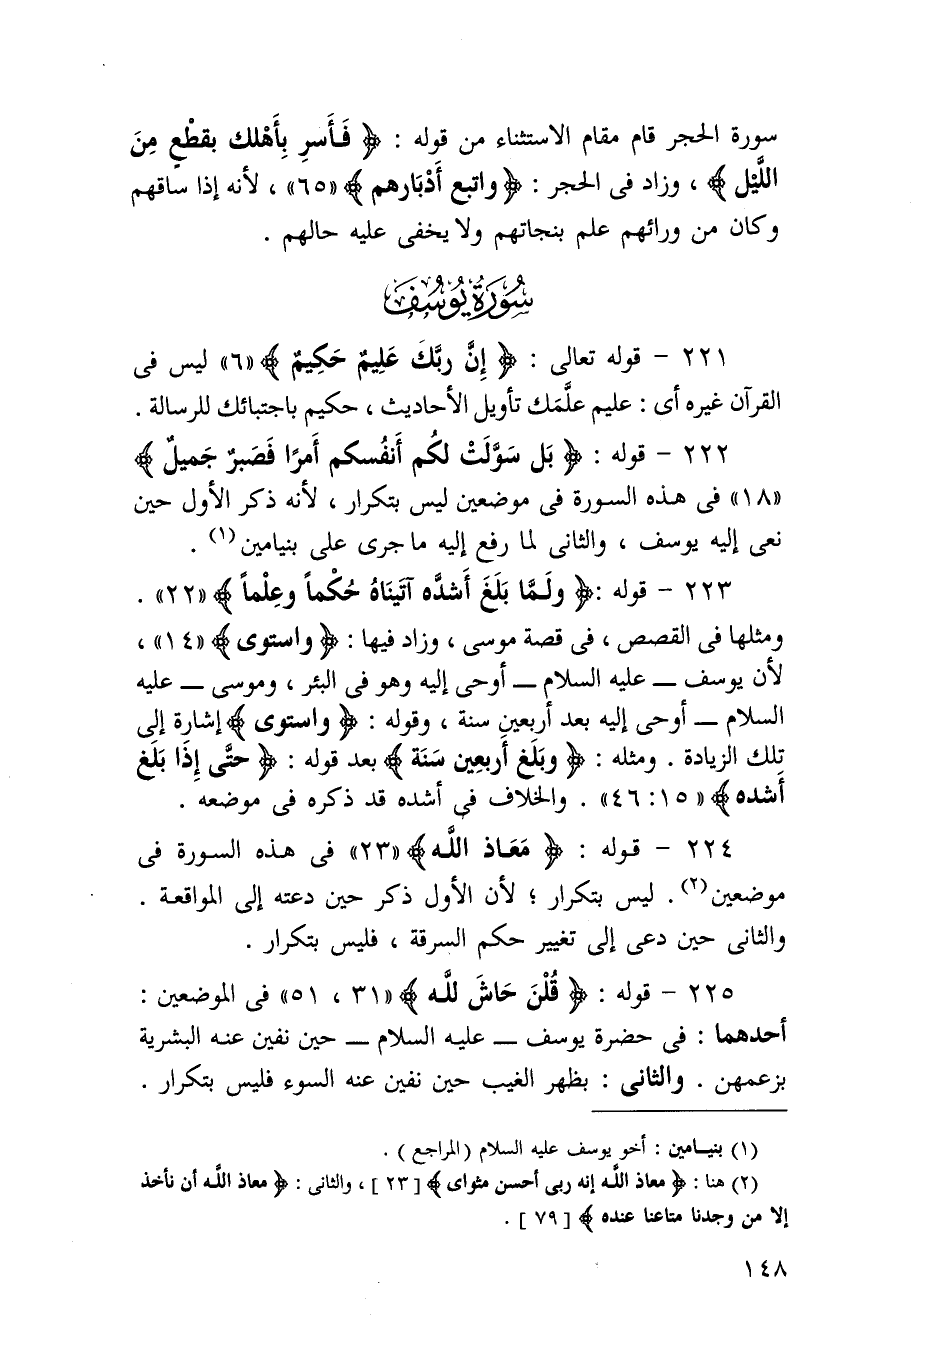 سورة الحجر قام مقام الاستثناء من قوله : ﴿ فَأَسرِ بِأَهْلك بقطْعٍ مِنَ
اللَّيْل ﴾ ، وزاد فى الحجر : ﴿ واتبع أَدْبَارهم ﴾ «٦٥» ، لأنه إذا ساقهم
وكان من ورائهم علم بنجاتهم ولا يخفى عليه حالهم .
سُورَةُ يُوسُفَ
٢٢١ – قوله تعالى : ﴿ إِنَّ ربَّكَ عَلِيمٌ حَكِيمٌ ﴾ «٦» ليس فى
القرآن غيره أى : عليم علَّمَك تأويل الأحاديث ، حكيم باجتبائك للرسالة .
٢٢٢ – قوله : ﴿ بَل سَوَّلَتْ لكُم أَنفُسكم أَمرًا فَصَبرٌ جَميلٌ ﴾
«١٨» فى هذه السورة فى موضعين ليس بتكرار ، لأنه ذكر الأول حين
نعى إليه يوسف ، والثانى لما رفع إليه ما جرى على بنيامين(١) .
٢٢٣ – قوله :﴿ ولَمَّا بَلَغَ أَشدَّه آتَيناهُ حُكْماً وعِلْماً ﴾ «٢٢» .
ومثلها فى القصص ، فى قصة موسى ، وزاد فيها : ﴿ واستوى ﴾ «١٤» ،
لأن يوسف – عليه السلام – أوحى إليه وهو فى البئر ، وموسى – عليه
السلام – أوحى إليه بعد أربعين سنة ، وقوله : ﴿ واستوى ﴾ إشارة إلى
تلك الزيادة . ومثله : ﴿ وبَلَغ أَربعِين سَنَة ﴾ بعد قوله : ﴿ حتَّى إِذَا بَلَغ
أَشده ﴾ «٤٦:١٥» . والخلاف فى أشده قد ذكره فى موضعه .
٢٢٤ – قوله : ﴿ مَعَاذ اللَّه ﴾ «٢٣» فى هذه السورة فى
موضعين(٢) . ليس بتكرار ؛ لأن الأول ذكر حين دعته إلى المواقعة .
والثانى حين دعى إلى تغيير حكم السرقة ، فليس بتكرار .
٢٢٥ – قوله : ﴿ قُلْنَ حَاشَ للَّه ﴾ «٣١ ، ٥١» فى الموضعين :
أحدهما : فى حضرة يوسف – عليه السلام – حين نفين عنه البشرية
بزعمهن . والثانى : بظهر الغيب حين نفين عنه السوء فليس بتكرار .
(١) بنيامين : أخو يوسف عليه السلام (المراجع) .
(٢) هنا : ﴿ معاذ اللَّه إنه ربى أحسن مثواى ﴾ [ ٢٣ ] ، والثانى : ﴿ معاذ اللَّه أن نأخذ
إلا من وجدنا متاعنا عنده ﴾ [ ٧٩ ] .
١٤٨